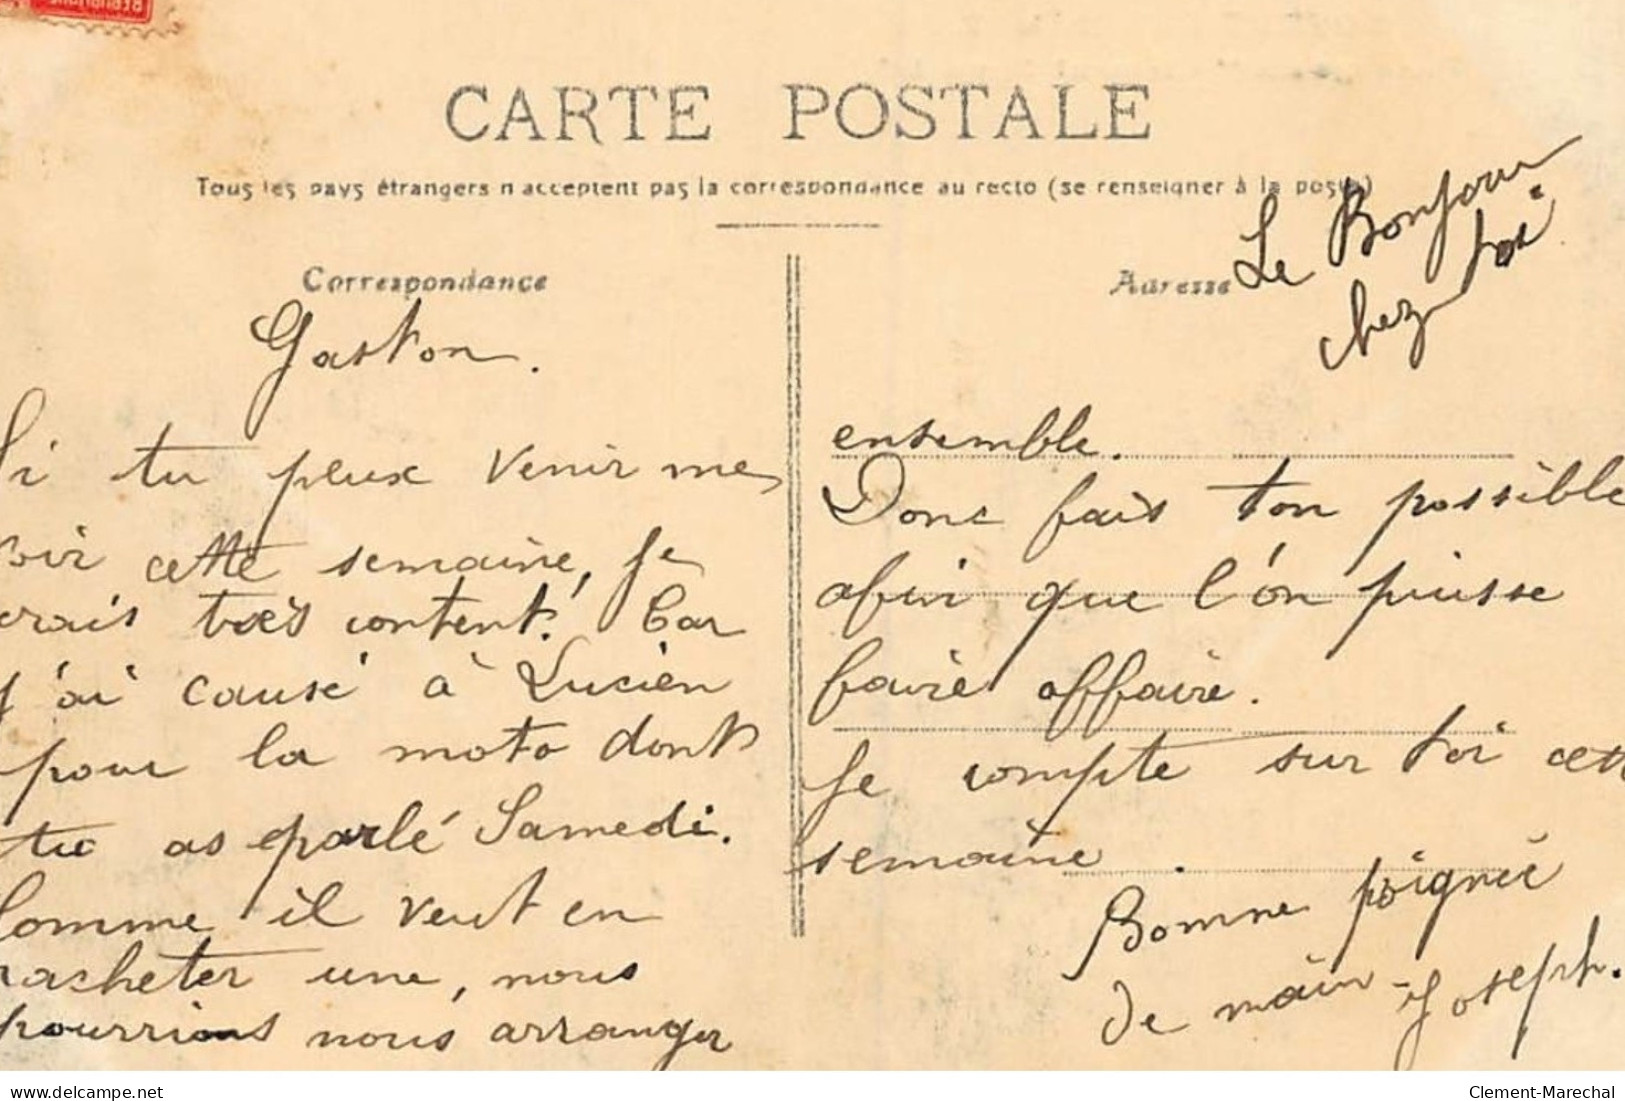 CARTE POSTALE
Tous les pays étrangers n'acceptent pas la correspondance au recto (se renseigner à la poste)
Correspondance
Gaston.
Si tu peux venir me
voir cette semaine, je
serais très content. Car
j'ai causé à Lucien
pour la moto dont
tu as parlé Samedi.
Comme il veut en
racheter une, nous
pourrions nous arranger
Adresse
Le Bonjour
chez toi
ensemble.
Donc fais ton possible
afin que l'on puisse
faire affaire.
Je compte sur toi cette
semaine.
Bonne poignée
de main - Joseph.
delcampe.net
Clement-Marechal